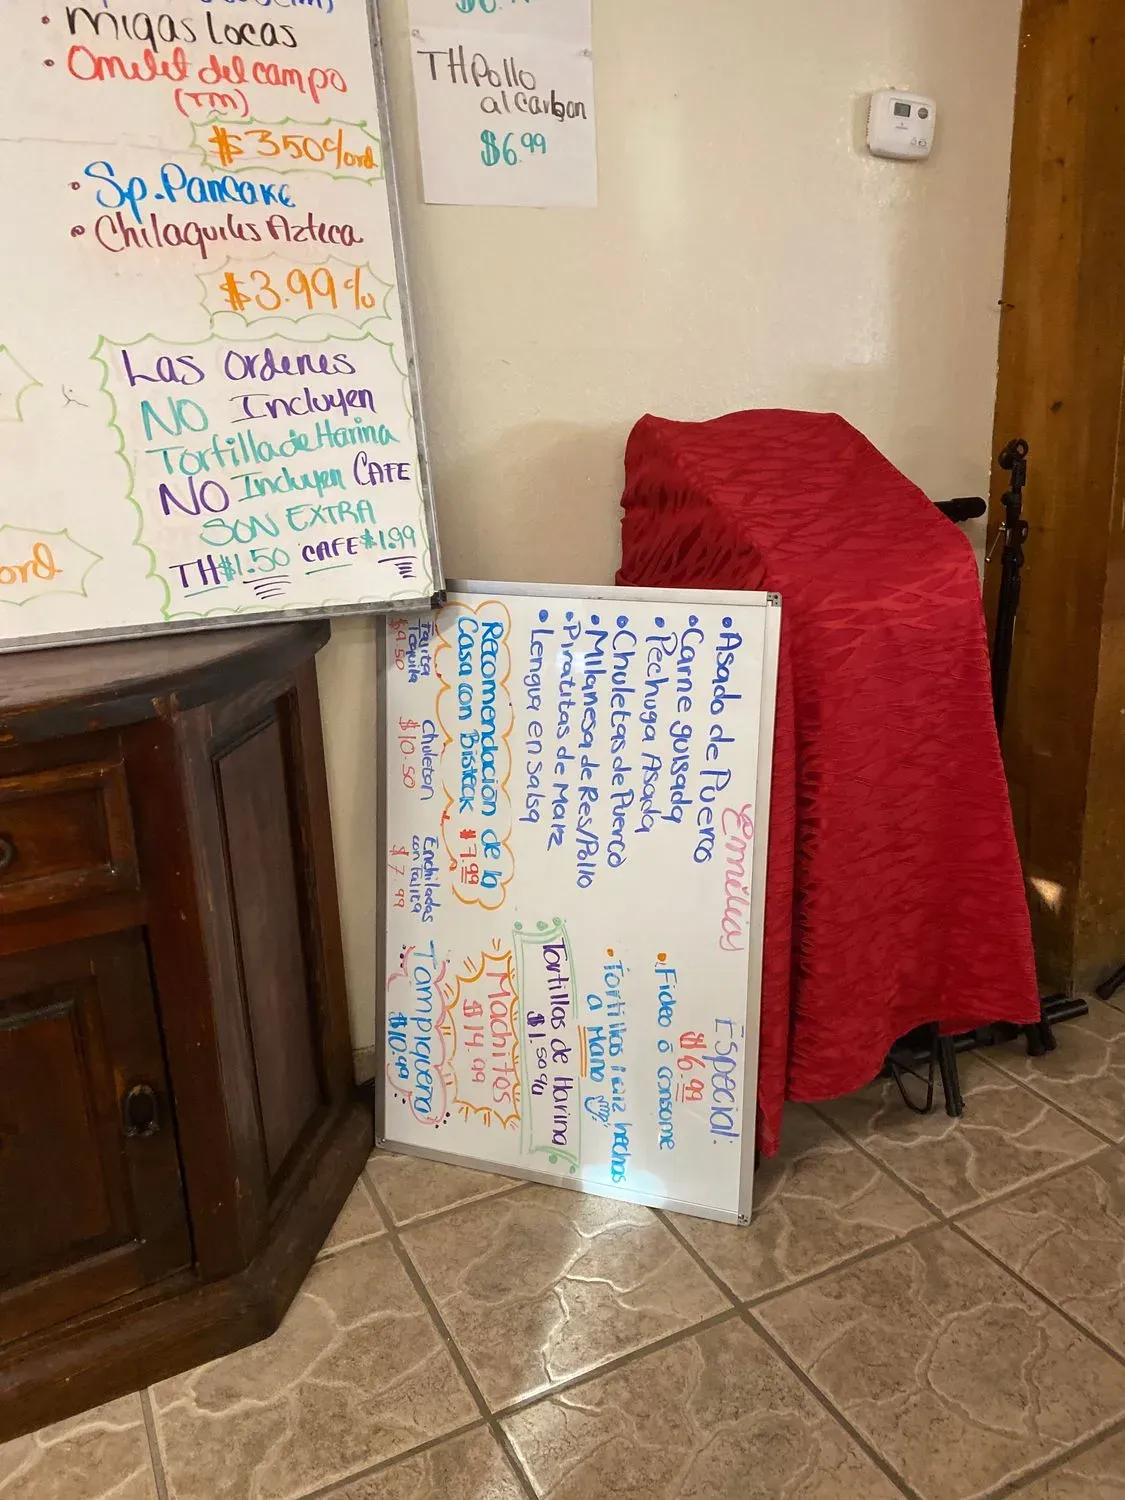 • Migas Locas
• Omelet del campo
(TM)
$3.50%ord
• Sp. Pancake
• Chilaquiles Azteca
$3.99%
Las Ordenes
NO Incluyen
Tortilla de Harina
NO Incluyen CAFE
SON EXTRA
TH $1.50 CAFE $1.99
ord
TH Pollo
al Carbon
$6.99
Emilios
Especial:
$6.99
• Asado de Puerco
• Carne guisada
• Pechuga Asada
• Chuletas de Puerco
• Milanesa de Res/Pollo
• Piratitas de Maiz
• Lengua en Salsa
• Fideo ó Consome
• Tortillas Maiz hechas
a Mano
Tortillas de Harina
$1.50%
Recomendación de la
Casa con Bisteck $7.99
Machitos
$14.99
Fajita
Tequila
$9.50
Chuleton
$10.50
Enchiladas
con Fajita
$7.99
Tampiqueña
$10.99